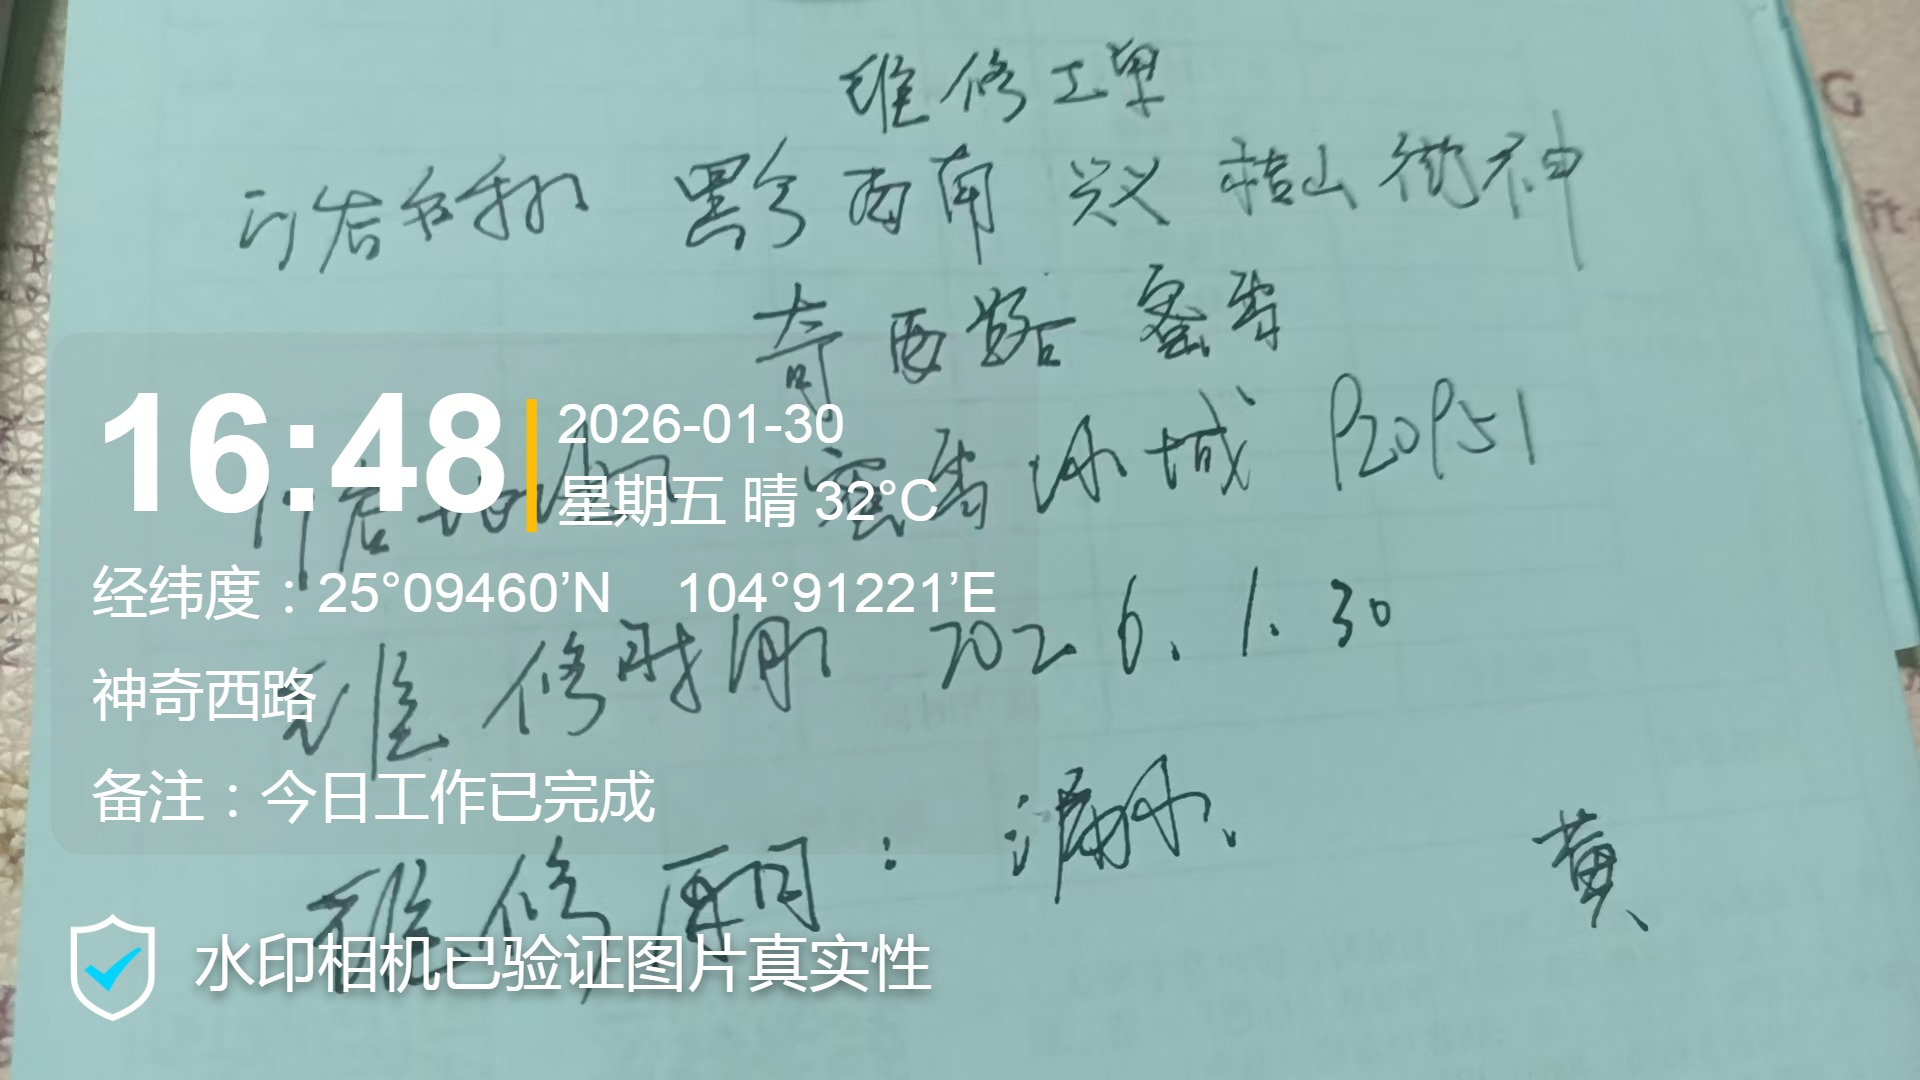 维修工单
门店名称 黔西南兴义桔山街神
奇西路蜜雪
门店 蜜雪冰城 P20P51
维修时间 2026.1.30
维修原因：漏水、
黄
16:48
2026-01-30
星期五 晴 32°C
经纬度：25°09460’N 104°91221’E
神奇西路
备注：今日工作已完成
水印相机已验证图片真实性